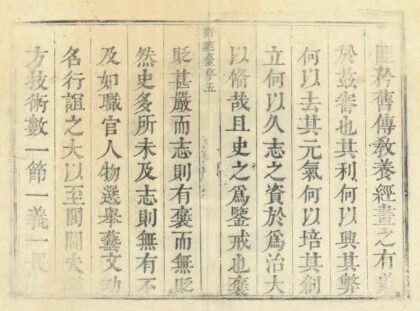 匪矜舊傳教養經畫之有
於茲審也其利何以興其弊
何以去其元氣何以培其創
立何以久志之資於爲治大
以哉且史之爲鑒戒也褒
臺序 五
貶甚嚴而志則有褒而無貶
然史多所未及志則無有不
及如職官人物選舉藝文功
名行誼之大以至閭閻夫
方技術數一節一義一長